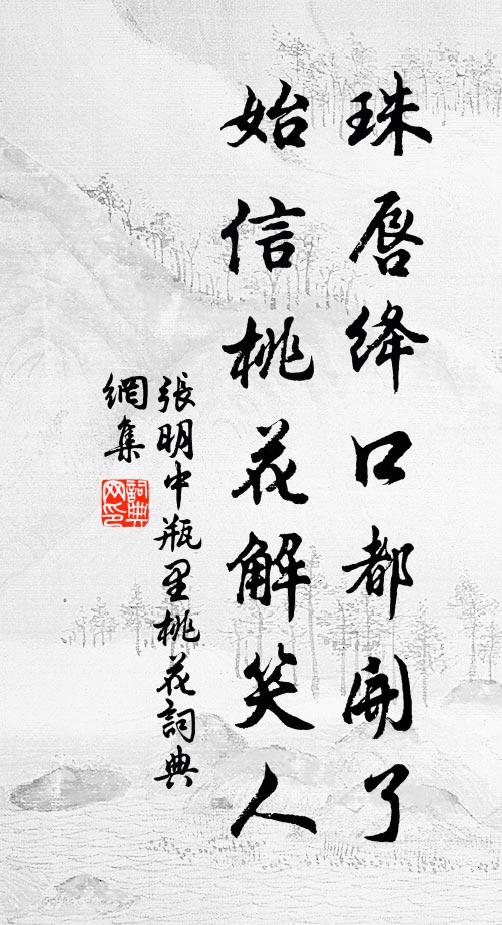 珠唇绛口都開了
始信桃花解笑人
張明中瓶里桃花詞典
網集
詞典
网印